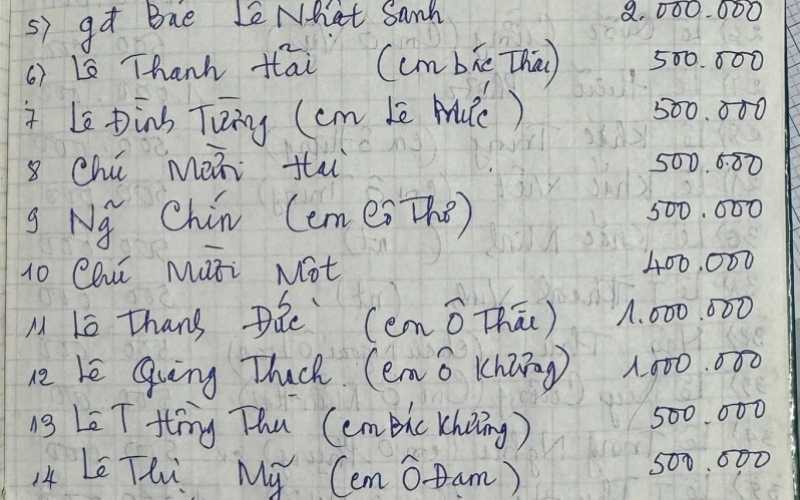 5) gđ Bác Lê Nhật Sanh 2.000.000
6) Lê Thanh Hải (em bác Thái) 500.000
7 Lê Đình Tường (em Lê Mước) 500.000
8 Chú Mười Hai 500.000
9 Ngỡ Chín (em Cô Thơ) 500.000
10 Chú Mười Một 400.000
11 Lê Thanh Đức (em Ô Thái) 1.000.000
12 Lê Quảng Thạch (em ô Khương) 1.000.000
13 Lê T Hồng Thu (em Bác Khương) 500.000
14 Lê Thị Mỹ (em Ô Đam) 500.000